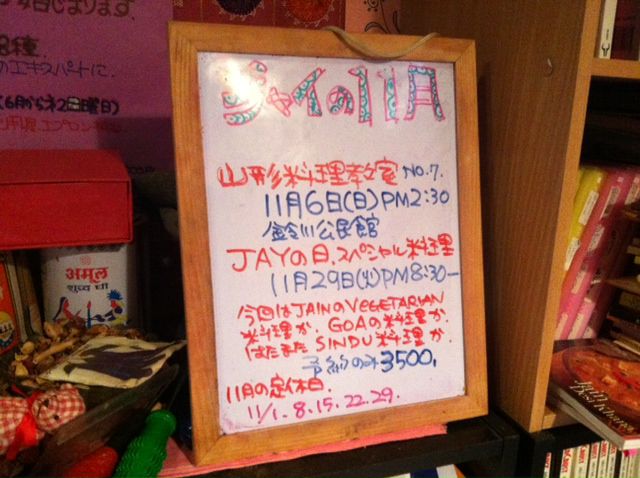 今日じまります
(6月から ネ2日曜日)
अमूल
शुध्ध घी
ジャイの11月
山形料理教室 NO.7.
11月6日(日)PM2:30
鈴川公民館
JAYの日.スペシャル料理
11月29日(火)PM8:30ー
今回はJAINのVEGETARIAN
料理か. GOAの料理か.
はたまた SINDU料理か.
予約のみ3500,
11月の定休日.
11/1.8.15.22.29.